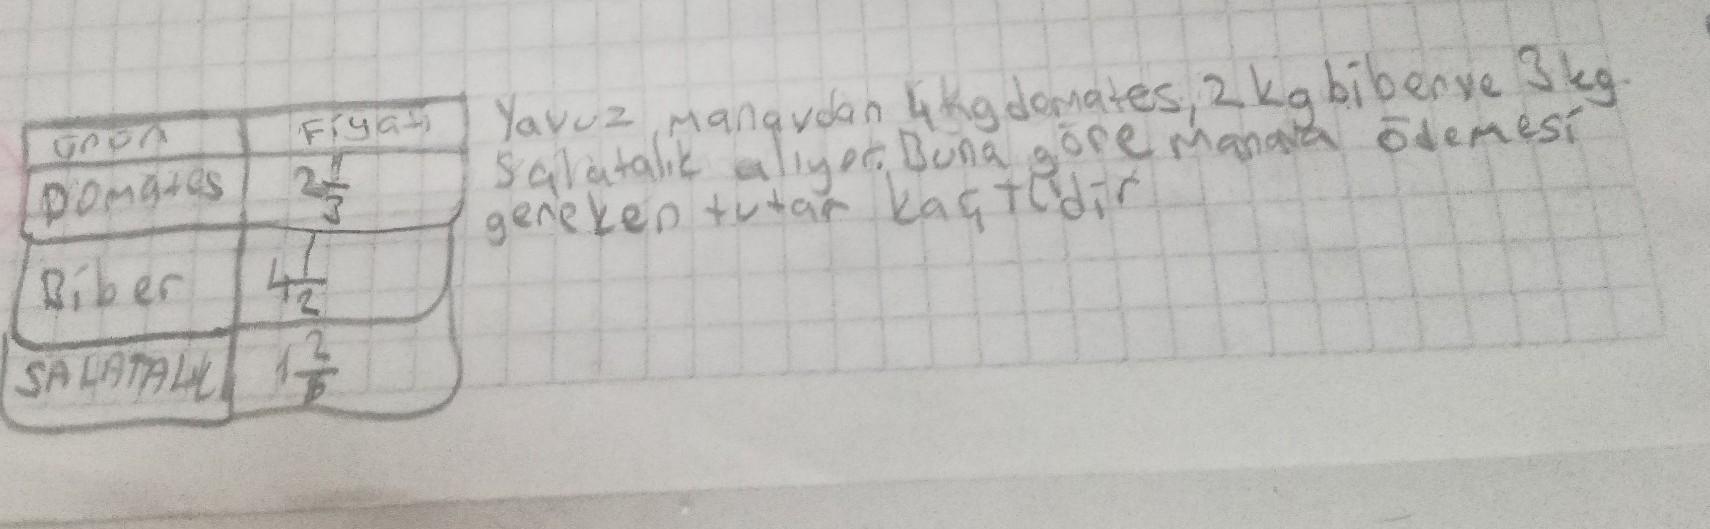 ürün Fiyatı
Domates 2 1/3
Biber 4 1/2
SALATALIK 1 2/6
Yavuz, manavdan 4 kg domates, 2 kg biber ve 3 kg
salatalık alıyor. Buna göre manava ödemesi
gereken tutar kaç TL'dir